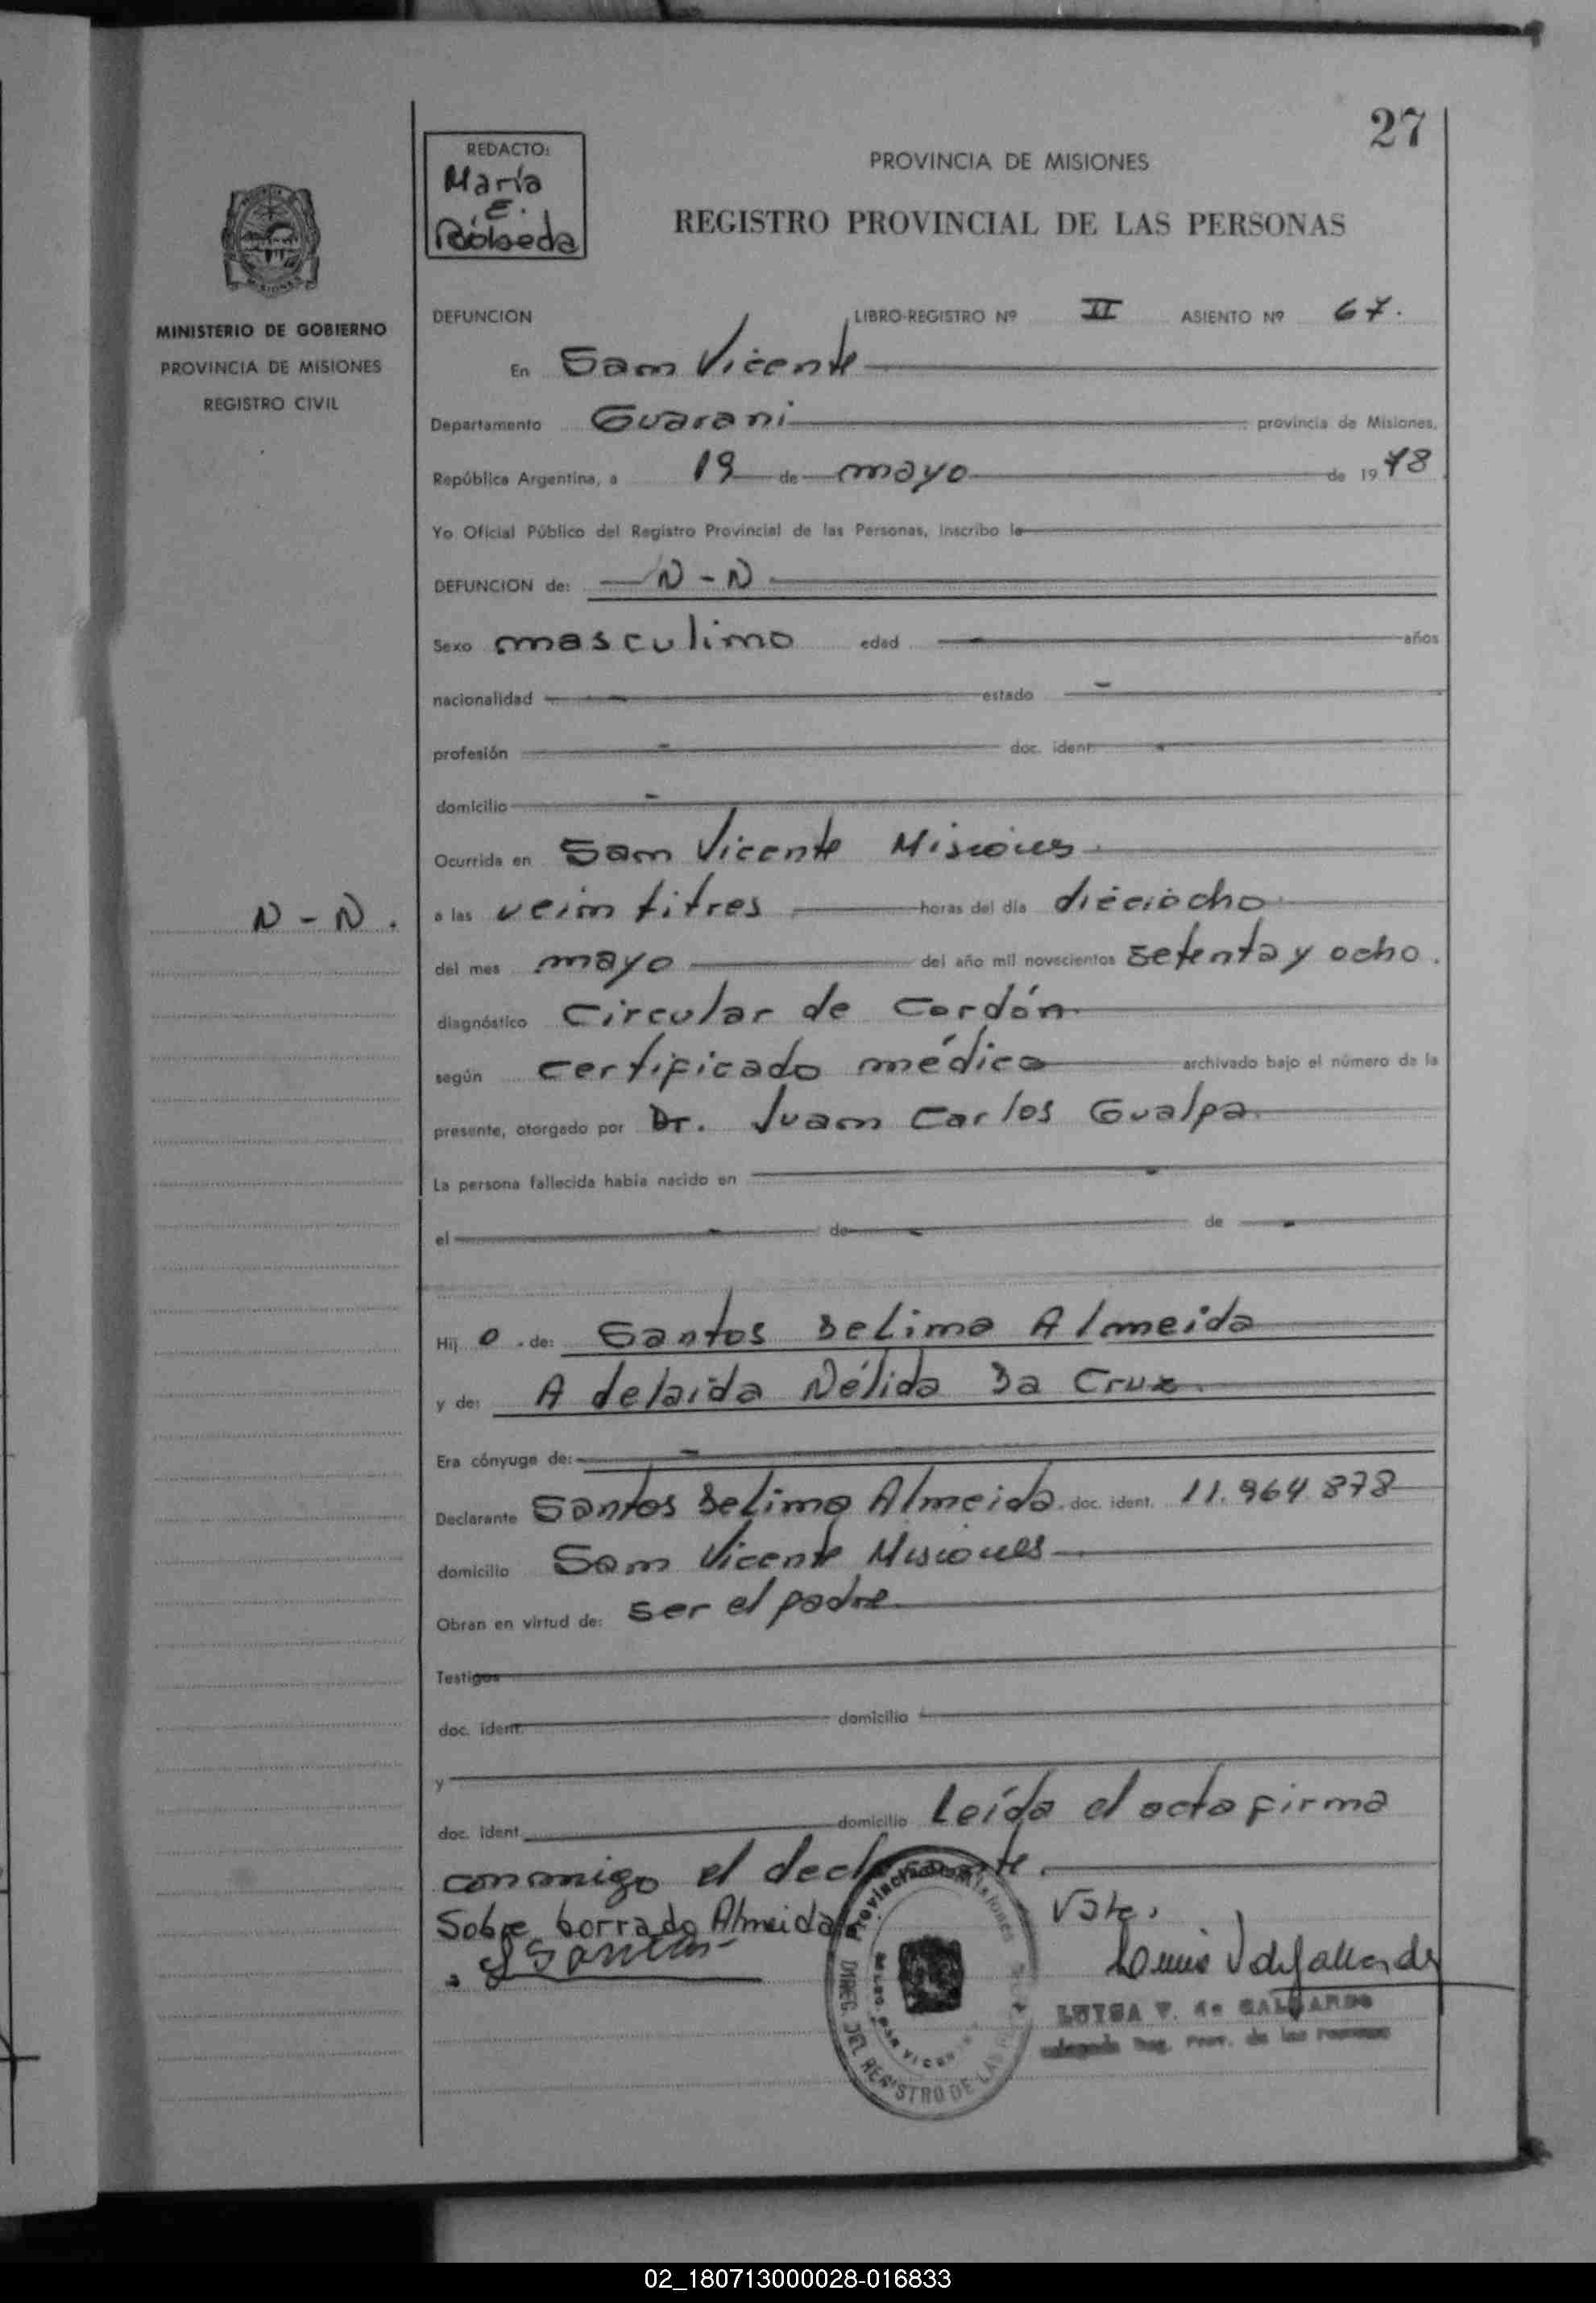 27
REDACTO:
María
E.
PROVINCIA DE MISIONES
REGISTRO PROVINCIAL DE LAS PERSONAS
MINISTERIO DE GOBIERNO
PROVINCIA DE MISIONES
REGISTRO CIVIL
DEFUNCION LIBRO-REGISTRO Nº II ASIENTO Nº 67.
En San Vicente
Departamento Guarani provincia de Misiones,
República Argentina, a 19 de mayo de 1978
Yo Oficial Público del Registro Provincial de las Personas, inscribo la
DEFUNCION de: N-N
Sexo masculino edad años
nacionalidad estado
profesión doc. ident.
domicilio
Ocurrida en San Vicente Misiones.
N-N.
a las veintitres horas del día dieciocho
del mes mayo del año mil novecientos setenta y ocho.
diagnóstico Circular de Cordón
según certificado médico archivado bajo el número de la
presente, otorgado por Dr. Juan Carlos Gualpa
La persona fallecida había nacido en
el de de
Hij o de: Santos DeLima Almeida
y de: Adelaida Nélida Da Cruz
Era cónyuge de:
Declarante Santos DeLima Almeida doc. ident. 11.964.878
domicilio San Vicente Misiones
Obran en virtud de: ser el padre
Testigos
doc. ident. domicilio
y
doc. ident. domicilio Leída el acta firma
conmigo el declarante.
Sobre borrado Almeida Vale.
Santos
Provincia de Misiones
DIREG. DEL REGISTRO DE LAS
SAN VICENTE
LUISA V. de GALLARDO
Reg. Prov. de las Personas
02_180713000028-016833